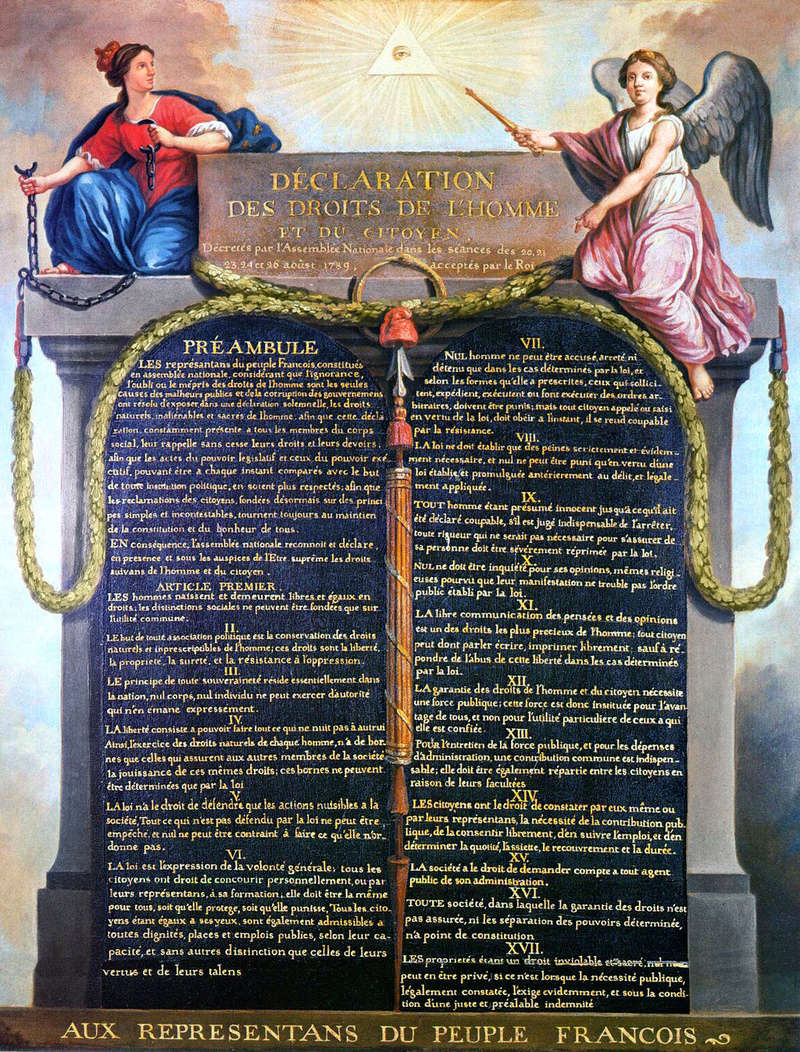 DÉCLARATION
DES DROITS DE L'HOMME
ET DU CITOYEN,
Décretés par l'Assemblée Nationale dans les séances des 20, 21
23, 24 et 26 août 1789, acceptés par le Roi
PRÉAMBULE
LES représentans du peuple François, constitués
en assemblée nationale, considérant que l'ignorance,
l'oubli ou le mépris des droits de l'homme sont les seules
causes des malheurs publics et de la corruption des gouvernemens
ont résolu d'exposer dans une déclaration solemnelle, les droits
naturels, inaliénables et sacrés de l'homme; afin que cette décla
ration, constamment présente a tous les membres du corps
social, leur rappelle sans cesse leurs droits et leurs devoirs;
afin que les actes du pouvoir législatif et ceux du pouvoir exé
cutif, pouvant être a chaque instant comparés avec le but
de toute institution politique, en soient plus respectés; afin que
les reclamations des citoyens, fondées désormais sur des princi
pes simples et incontestables, tournent toujours au maintien
de la constitution et du bonheur de tous.
EN conséquence, l'assemblée nationale reconnoit et déclare,
en presence et sous les auspices de l'Etre suprême les droits
suivans de l'homme et du citoyen.
ARTICLE PREMIER.
LES hommes naissent et demeurent libres et égaux en
droits; les distinctions sociales ne peuvent être fondées que sur
l'utilité commune.
II.
LE but de toute association politique est la conservation des droits
naturels et inprescriptibles de l'homme; ces droits sont la liberté,
la propriété, la sureté, et la résistance à l'oppression.
III.
LE principe de toute souveraineté réside essentiellement dans
la nation, nul corps, nul individu ne peut exercer d'autorité
qui n'en émane expressément.
IV.
LA liberté consiste a pouvoir faire tout ce qui ne nuit pas à autrui
Ainsi, l'exercice des droits naturels de chaque homme, n'a de bor
nes que celles qui assurent aux autres membres de la société
la jouissance de ces mêmes droits; ces bornes ne peuvent
être déterminées que par la loi
V.
LA loi n'a le droit de défendre que les actions nuisibles a la
société, Tout ce qui n'est pas défendu par la loi ne peut être
empêché, et nul ne peut être contraint à faire ce qu'elle n'or-
donne pas.
VI.
LA loi est l'expression de la volonté générale; tous les
citoyens ont droit de concourir personnellement, ou par
leurs représentans, à sa formation; elle doit être la même
pour tous, soit qu'elle protege, soit qu'elle punisse, Tous les cito
yens étant égaux a ses yeux, sont également admissibles a
toutes dignités, places et emplois publics, selon leur ca-
pacité, et sans autres distinction que celles de leurs
vertus et de leurs talens
VII.
NUL homme ne peut être accusé, arreté ni
détenu que dans les cas déterminés par la loi, et
selon les formes qu'elle a prescrites, ceux qui sollici-
tent, expédient, exécutent ou font exécuter des ordres ar-
bitraires, doivent être punis; mais tout citoyen appelé ou saisi
en vertu de la loi, doit obéir a l'instant, il se rend coupable
par la résistance.
VIII.
LA loi ne doit établir que des peines strictement et évidem-
ment nécessaire, et nul ne peut être puni qu'en vertu d'une
loi établie et promulguée antérierement au délit, et légale-
ment appliquée.
IX.
TOUT homme étant présumé innocent jusqu'à ce qu'il ait
été déclaré coupable, s'il est jugé indispensable de l'arrêter,
toute rigueur qui ne serait pas nécessaire pour s'assurer de
sa personne doit être sévérement réprimée par la loi.
X.
NUL ne doit être inquiété pour ses opinions, mêmes religi
euses pourvu que leur manifestation ne trouble pas l'ordre
public établi par la loi.
XI.
LA libre communication des pensées et des opinions
est un des droits les plus precieux de l'homme; tout citoyen
peut dont parler écrire, imprimer librement: sauf à ré
pondre de l'abus de cette liberté dans les cas déterminés
par la loi.
XII.
LA garantie des droits de l'homme et du citoyen nécessite
une force publique; cette force est donc instituée pour l'avan
tage de tous, et non pour l'utilité particuliere de ceux a qui
elle est confiée.
XIII.
POUR l'entretien de la force publique, et pour les dépenses
d'administration, une contribution commune est indispen-
sable; elle doit être également répartie entre les citoyens en
raison de leurs facultées
XIV.
LES citoyens ont le droit de constater par eux même ou
par leurs représentans, la nécessité de la contribution pub-
lique, de la consentir librement, d'en suivre l'emploi, et d'en
déterminer la quotité, l'assiette, le recouvrement et la durée.
XV.
LA société a le droit de demander compte a tout agent
public de son administration.
XVI.
TOUTE société, dans laquelle la garantie des droits n'est
pas assurée, ni les séparation des pouvoirs déterminée,
n'a point de constitution
XVII.
LES proprietés étant un droit inviolable et sacré, nul ne
peut en être privé, si ce n'est lorsque la nécessité publique,
légalement constatée, l'exige evidemment, et sous la condi-
tion d'une juste et préalable indemnité
AUX REPRESENTANS DU PEUPLE FRANCOIS